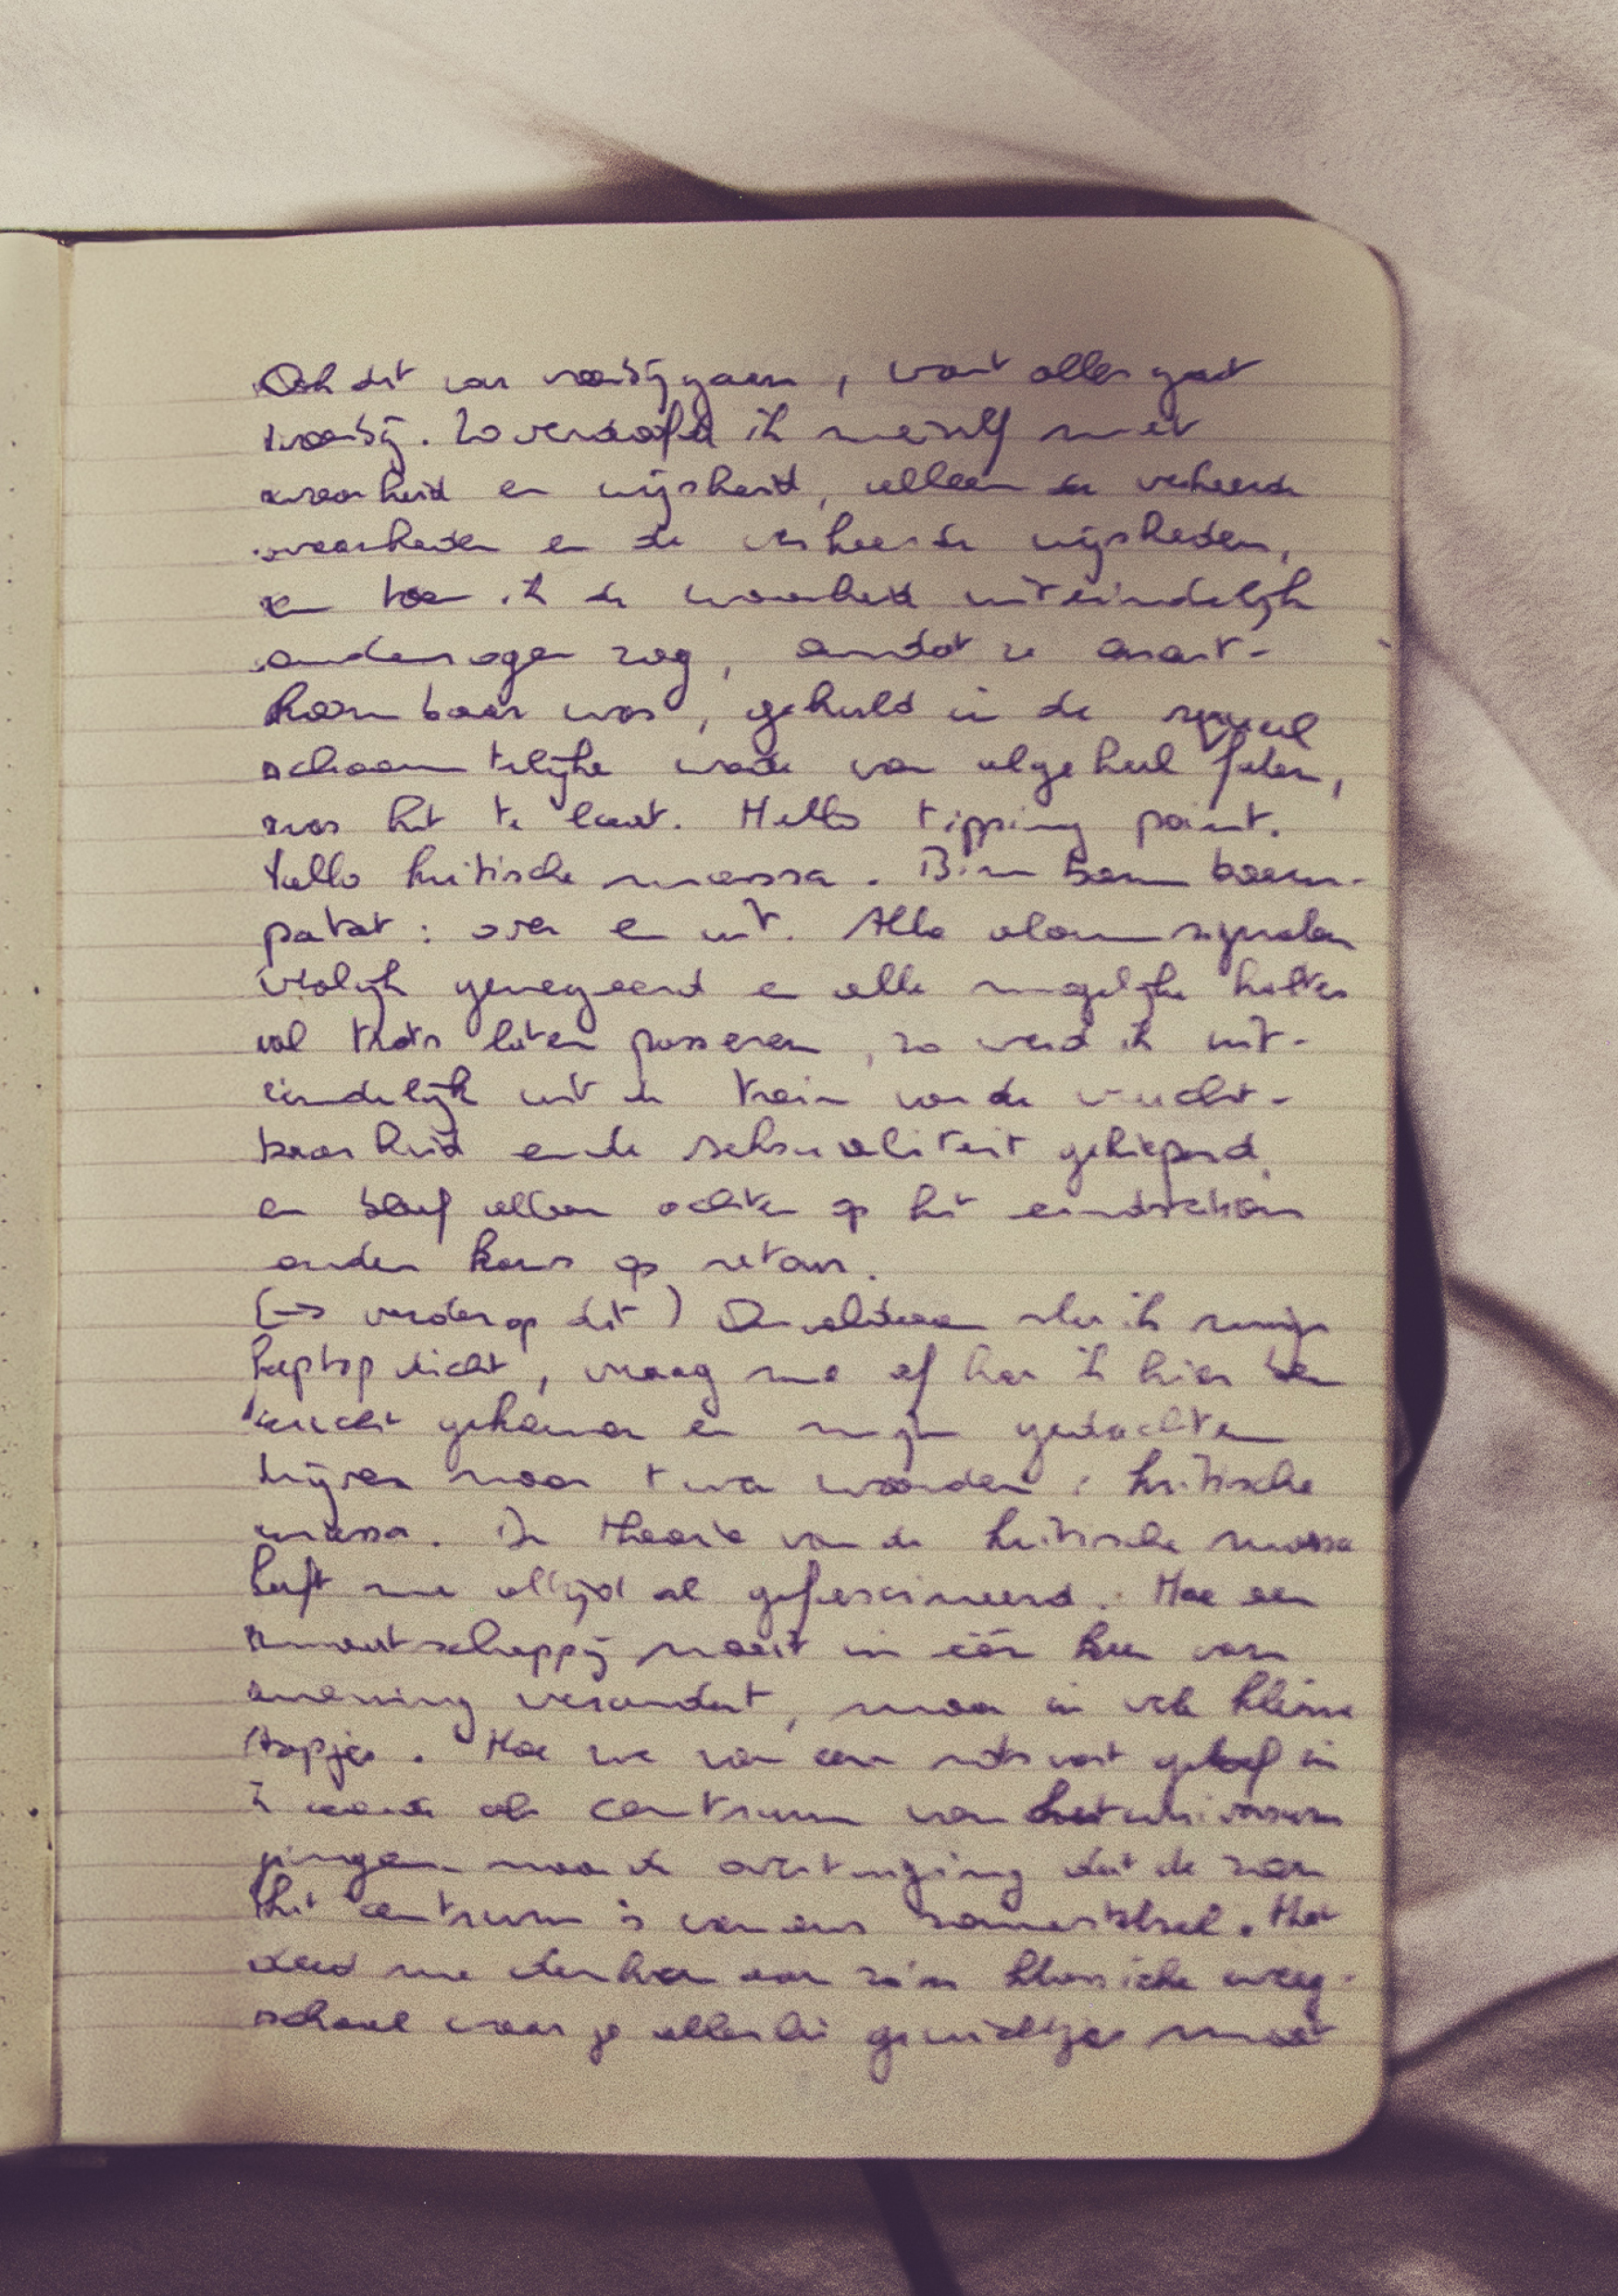 Ook dit zou voorbijgaan, want alles gaat
voorbij. Zo verdoofde ik mezelf met
waarheid en wijsheid, alleen de verkeerde
waarheden en de verkeerde wijsheden,
en toen ik de waarheid uiteindelijk
onder ogen zag, omdat ze onont-
koombaar was, gehuld in de
schaamtelijke wade van algeheel falen,
was het te laat. Hello tipping point.
Hello kritische massa. Bim bam boem-
patat: over en uit. Alle alarmsignalen
vrolijk genegeerd en alle mogelijke haltes
vol trots laten passeren, zo werd ik uit-
eindelijk uit de trein van de vrucht-
baarheid en de seksualiteit gekieperd,
en bleef alleen achter op het eindstation
zonder kans op retour.
(→ verder op dit) Onvoldaan sla ik mijn
laptop dicht, vraag me af hoe ik hier ben
terecht gekomen en mijn gedachten
drijven naar twee woorden: kritische
massa. De theorie van de kritische massa
heeft me altijd al gefascineerd. Hoe een
maatschappij nooit in één keer van
mening verandert, maar in vele kleine
stapjes. Hoe we van een rotsvast geloof in
de aarde als centrum van het universum
gingen naar de overtuiging dat de zon
het centrum is van ons zonnestelsel. Het
deed me denken aan zo'n klassieke weeg-
schaal waar je allerlei gewichtjes moet